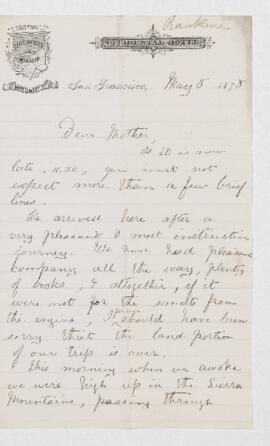 Rankine
OCCIDENTAL HOTEL
San Francisco, May 8 1878
Dear Mother,
As it is now
late, 11.30, you must not
expect more than a few brief
lines.
We arrived here after a
very pleasant & most instructive
journey. We have had pleasant
company all the way, plenty
of books, & altogether, if it
were not for the smuts from
the engine, I should have been
sorry that the land portion
of our trip is over.
This morning when we awoke
we were high up in the Sierra
Mountains, passing through